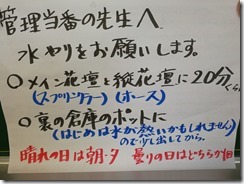 管理当番の先生へ
水やりをお願いします。
○メイン花壇と縦花壇に20分くらい
(スプリンクラー) (ホース)
○裏の倉庫のポットに
(はじめは水が熱いかもしれません)
ので少し出してから。
晴れの日は朝・夕 曇りの日はどちらか1回